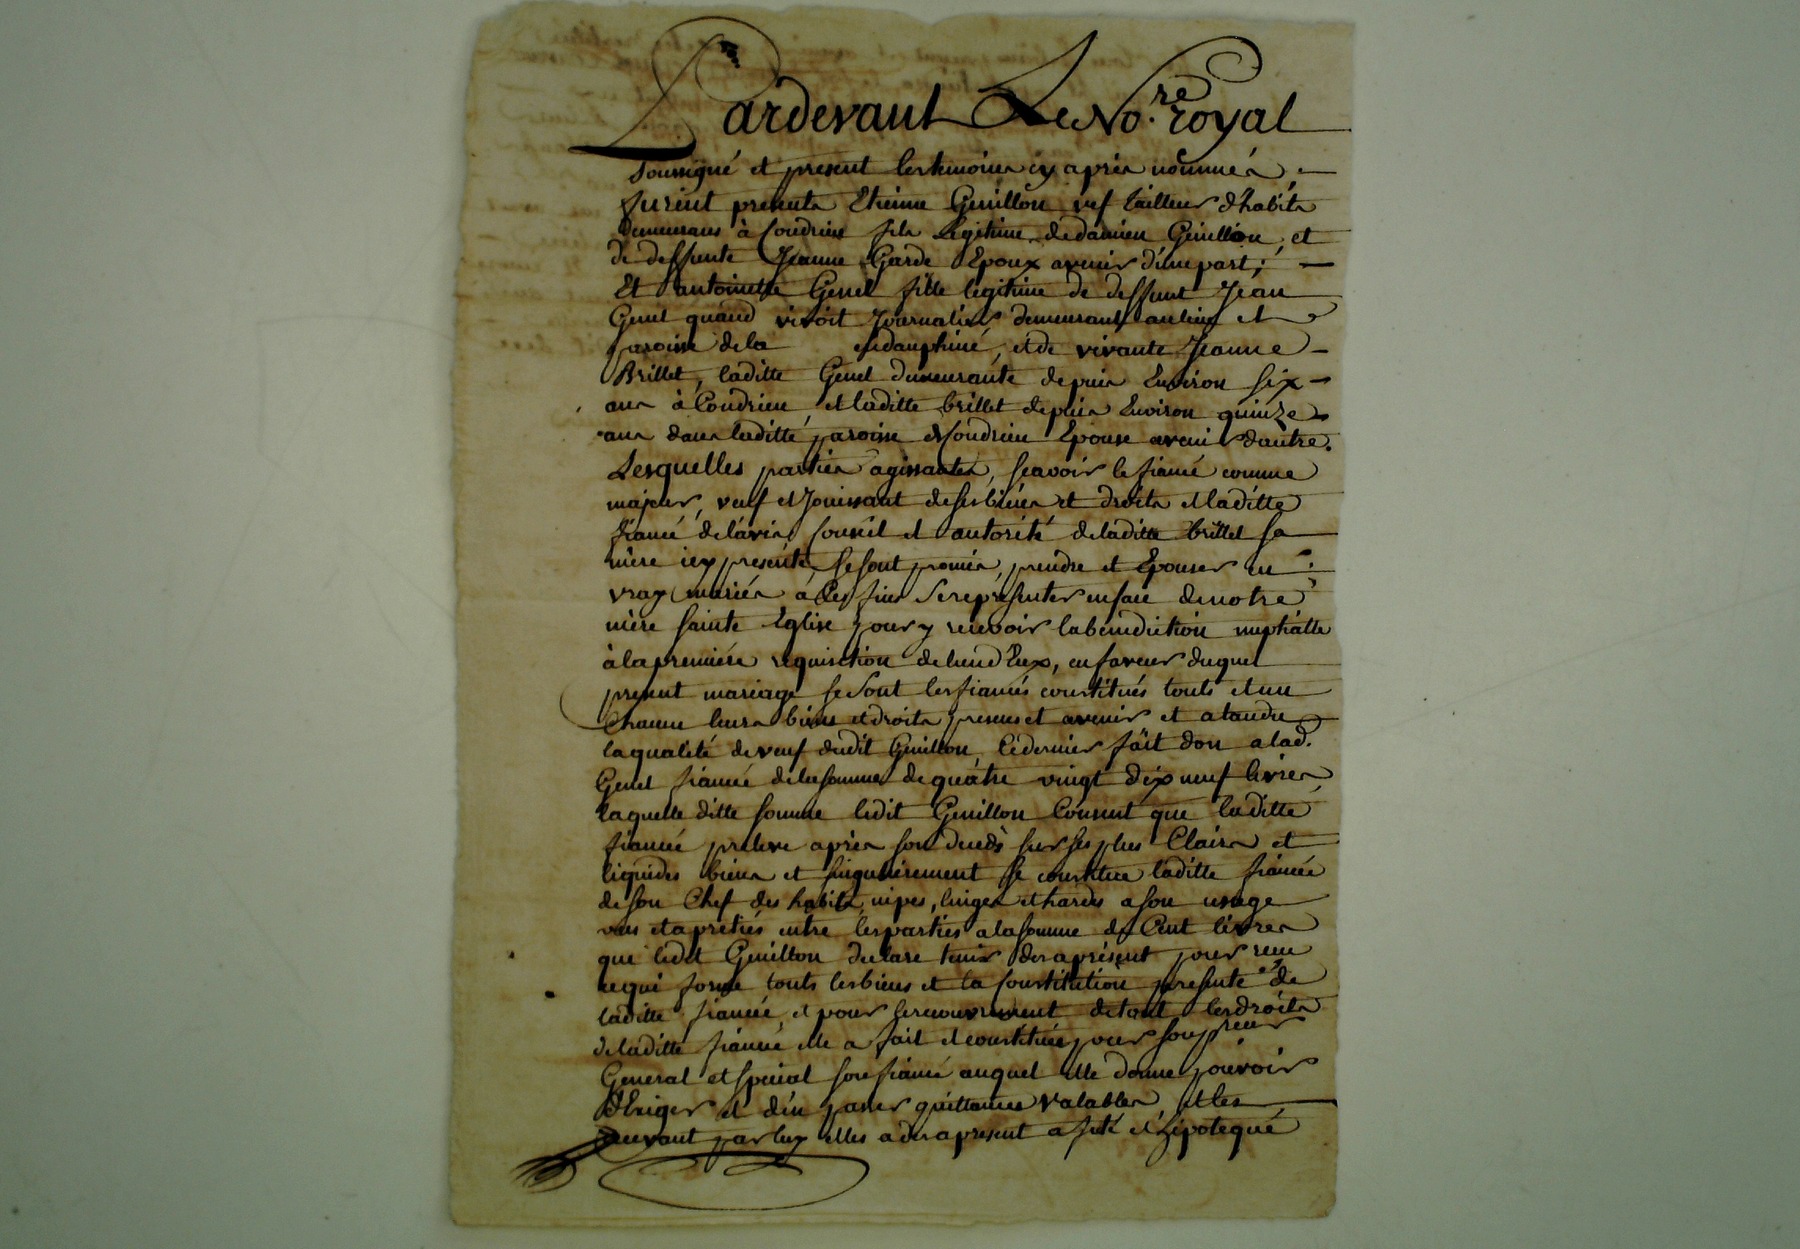 Pardevant Le No.re royal
soussigné et present les temoins cy après nommés,
furent presents Etienne Genillon vef tailleur d'habits
demeurans à Condrieu fils Legitime de damien Genillon, et
de deffunte Jeanne Garde Epoux avenir d'une part;
Et antoinette Genel fille legitime de deffunt Jean
Genel quand vivoit Journalier demeurant au lieu et
paroisse de la en dauphiné, et de vivante Jeanne
Brillet, laditte Genel demeurante depuis Environ six
ans à Condrieu, et laditte brillet depuis Environ quinze
ans dans laditte paroisse de Condrieu Epouse avenir d'autre.
Lesquelles parties agissantes, scavoir le fiancé comme
majeur, veuf et Jouissant de ses biens et droits et laditte
fiancé de l'avis conseil et autorité de laditte brillet sa
mère icy presénte se sont promis, prendre et Epouser en
vray mariés à Ces fins se représenter en face de notre
mère sainte Eglise pour y recevoir la bénédiction nuptialle
à la première requisition de lun d'Eux, en faveur duquel
present mariage se sont les fiancés constitués touts et un
Chacun leurs biens et droits presens et avenir et atandu
la qualité de veuf dudit Genillon, cé dernier fait don a lad.
Genel fiancée de la somme de quatre vingt dix neuf livres,
laquelle ditte somme ledit Genillon Consent que laditte
fiancée preleve après son deceds sur ses plus Clairs et
liquides biens et singulierement se constitue laditte fiancée
de son Chef des habits, nipes, linges et hardes a son usage
vus et apretiés entre les parties a la somme de Cent livres
que ledit Genillon declare tenir des a présent pour reçu
ce qui forme touts les biens et la Constitution presente de
laditte fiancée, et pour le recouvrement de tout les droits
de laditte fiancée elle a fait et constitué pour son preur
General et special son fiancé auquel elle donne pouvoir
d'Exiger et d'en passer quittances valables, et les
recevant par luy elles a des a present assuré et hipotequé